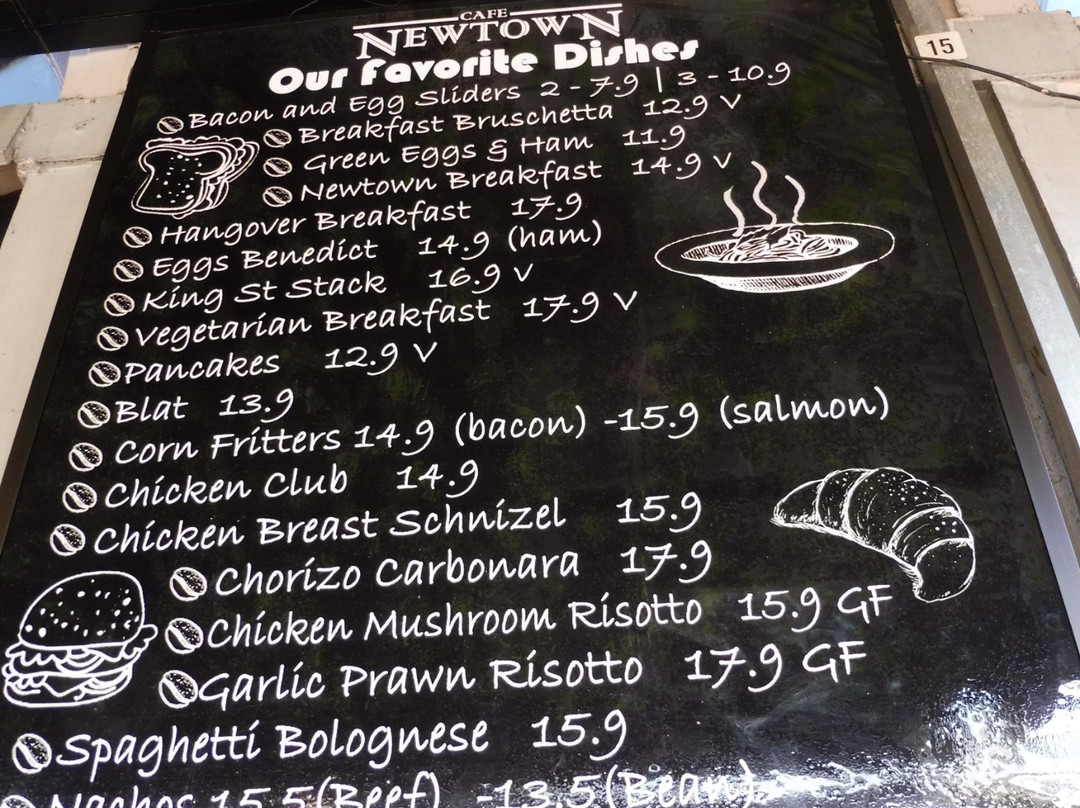 CAFE
NEWTOWN
Our Favorite Dishes
Bacon and Egg Sliders 2 - 7.9 | 3 - 10.9
Breakfast Bruschetta 12.9 V
Green Eggs & Ham 11.9
Newtown Breakfast 14.9 V
Hangover Breakfast 17.9
Eggs Benedict 14.9 (ham)
King St Stack 16.9 V
Vegetarian Breakfast 17.9 V
Pancakes 12.9 V
Blat 13.9
Corn Fritters 14.9 (bacon) -15.9 (salmon)
Chicken Club 14.9
Chicken Breast Schnizel 15.9
Chorizo Carbonara 17.9
Chicken Mushroom Risotto 15.9 GF
Garlic Prawn Risotto 17.9 GF
Spaghetti Bolognese 15.9
Nachos 15.5(Beef) -13.5(Bean)
15